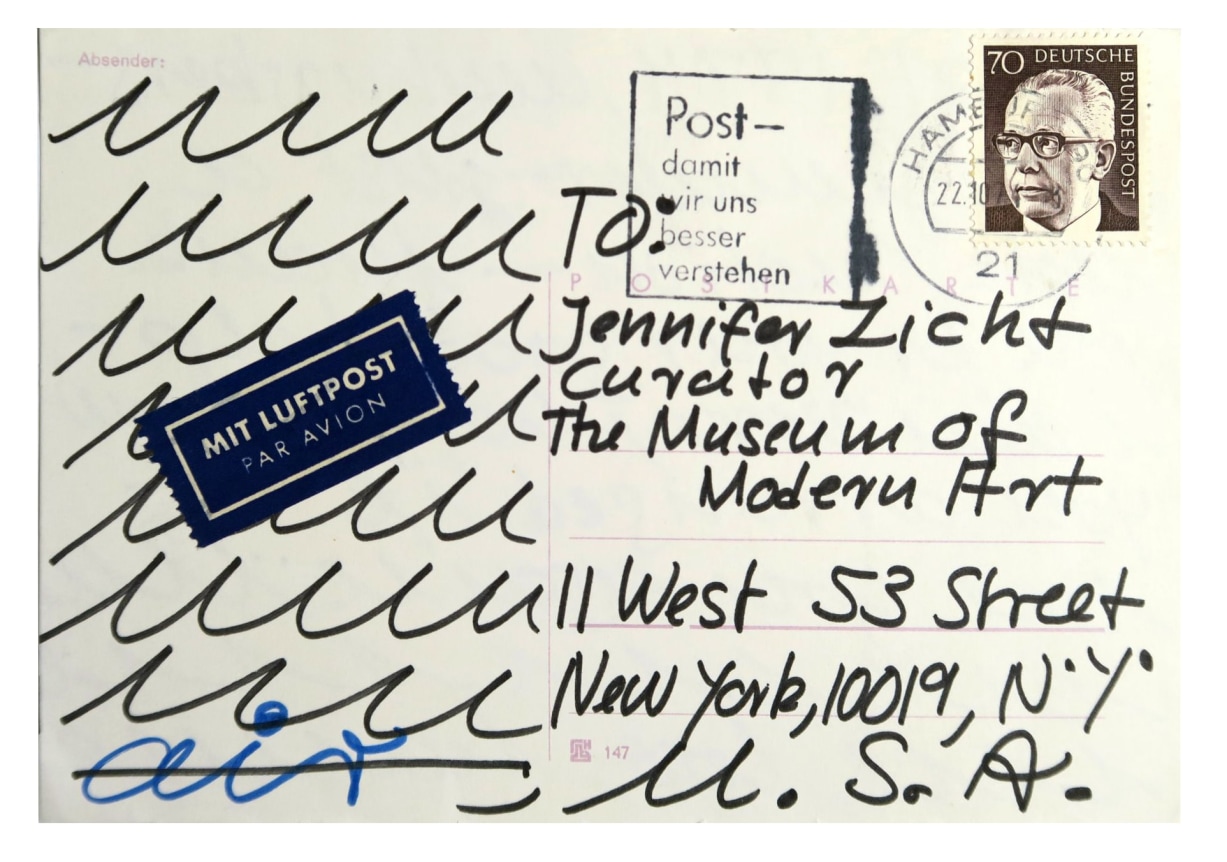 Absender:
Post-
damit
wir uns
besser
verstehen
70 DEUTSCHE
BUNDESPOST
22.10
21
POSTKARTE
MIT LUFTPOST
PAR AVION
To:
Jennifer Licht
Curator
The Museum of
Modern Art
11 West 53 Street
New York, 10019, N.Y.
U. S. A.
air
147